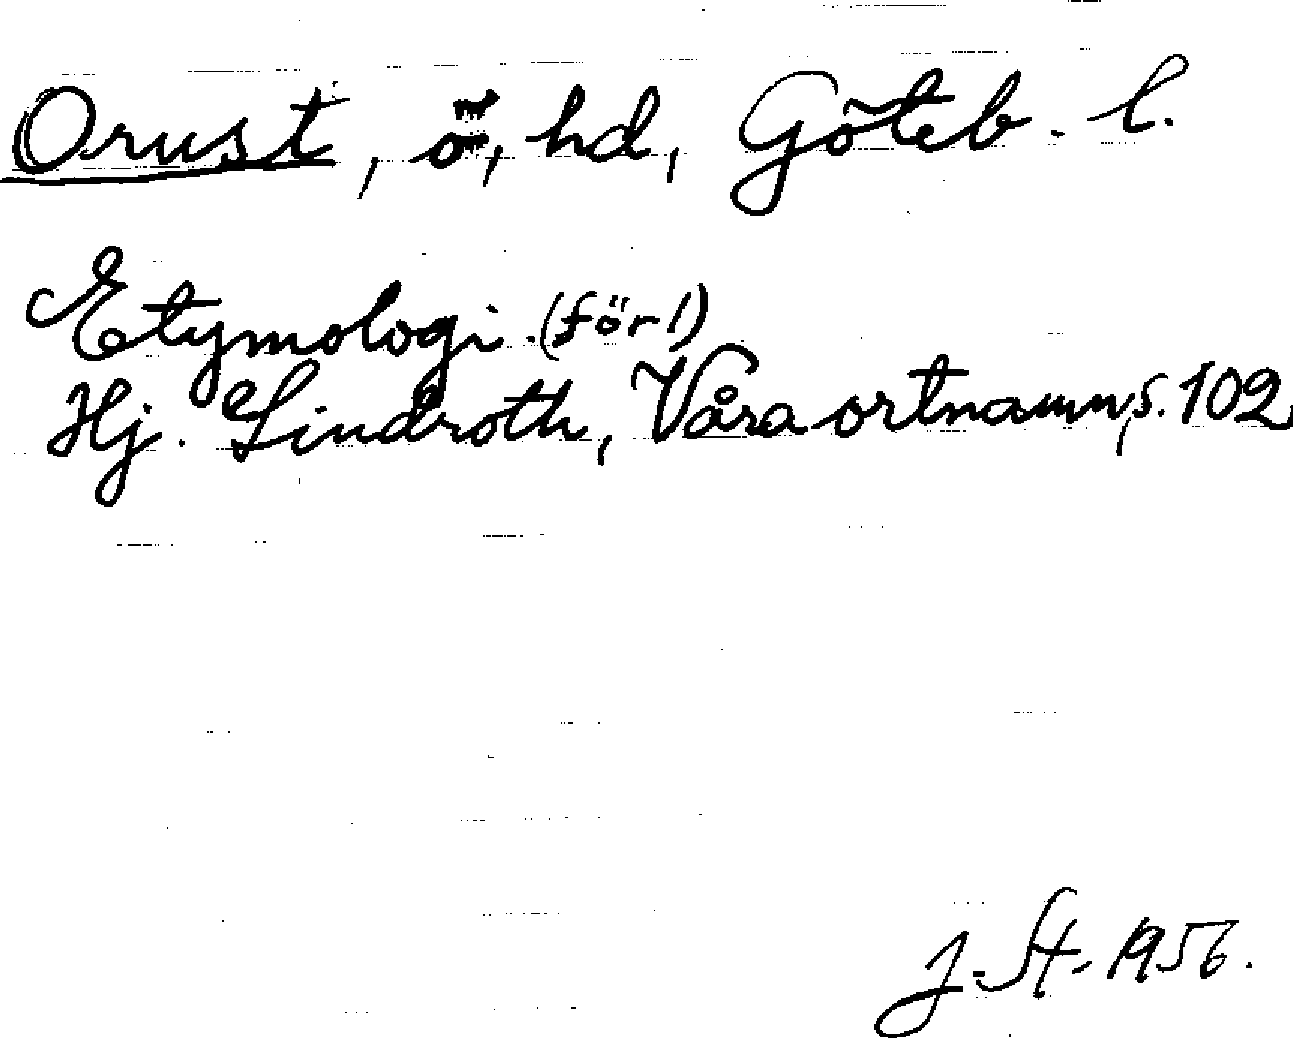 Orust, ö, hd, Göteb. l.
Etymologi. (för!)
Hj. Lindroth, Våra ortnamn, s. 102
J. St. 1956.